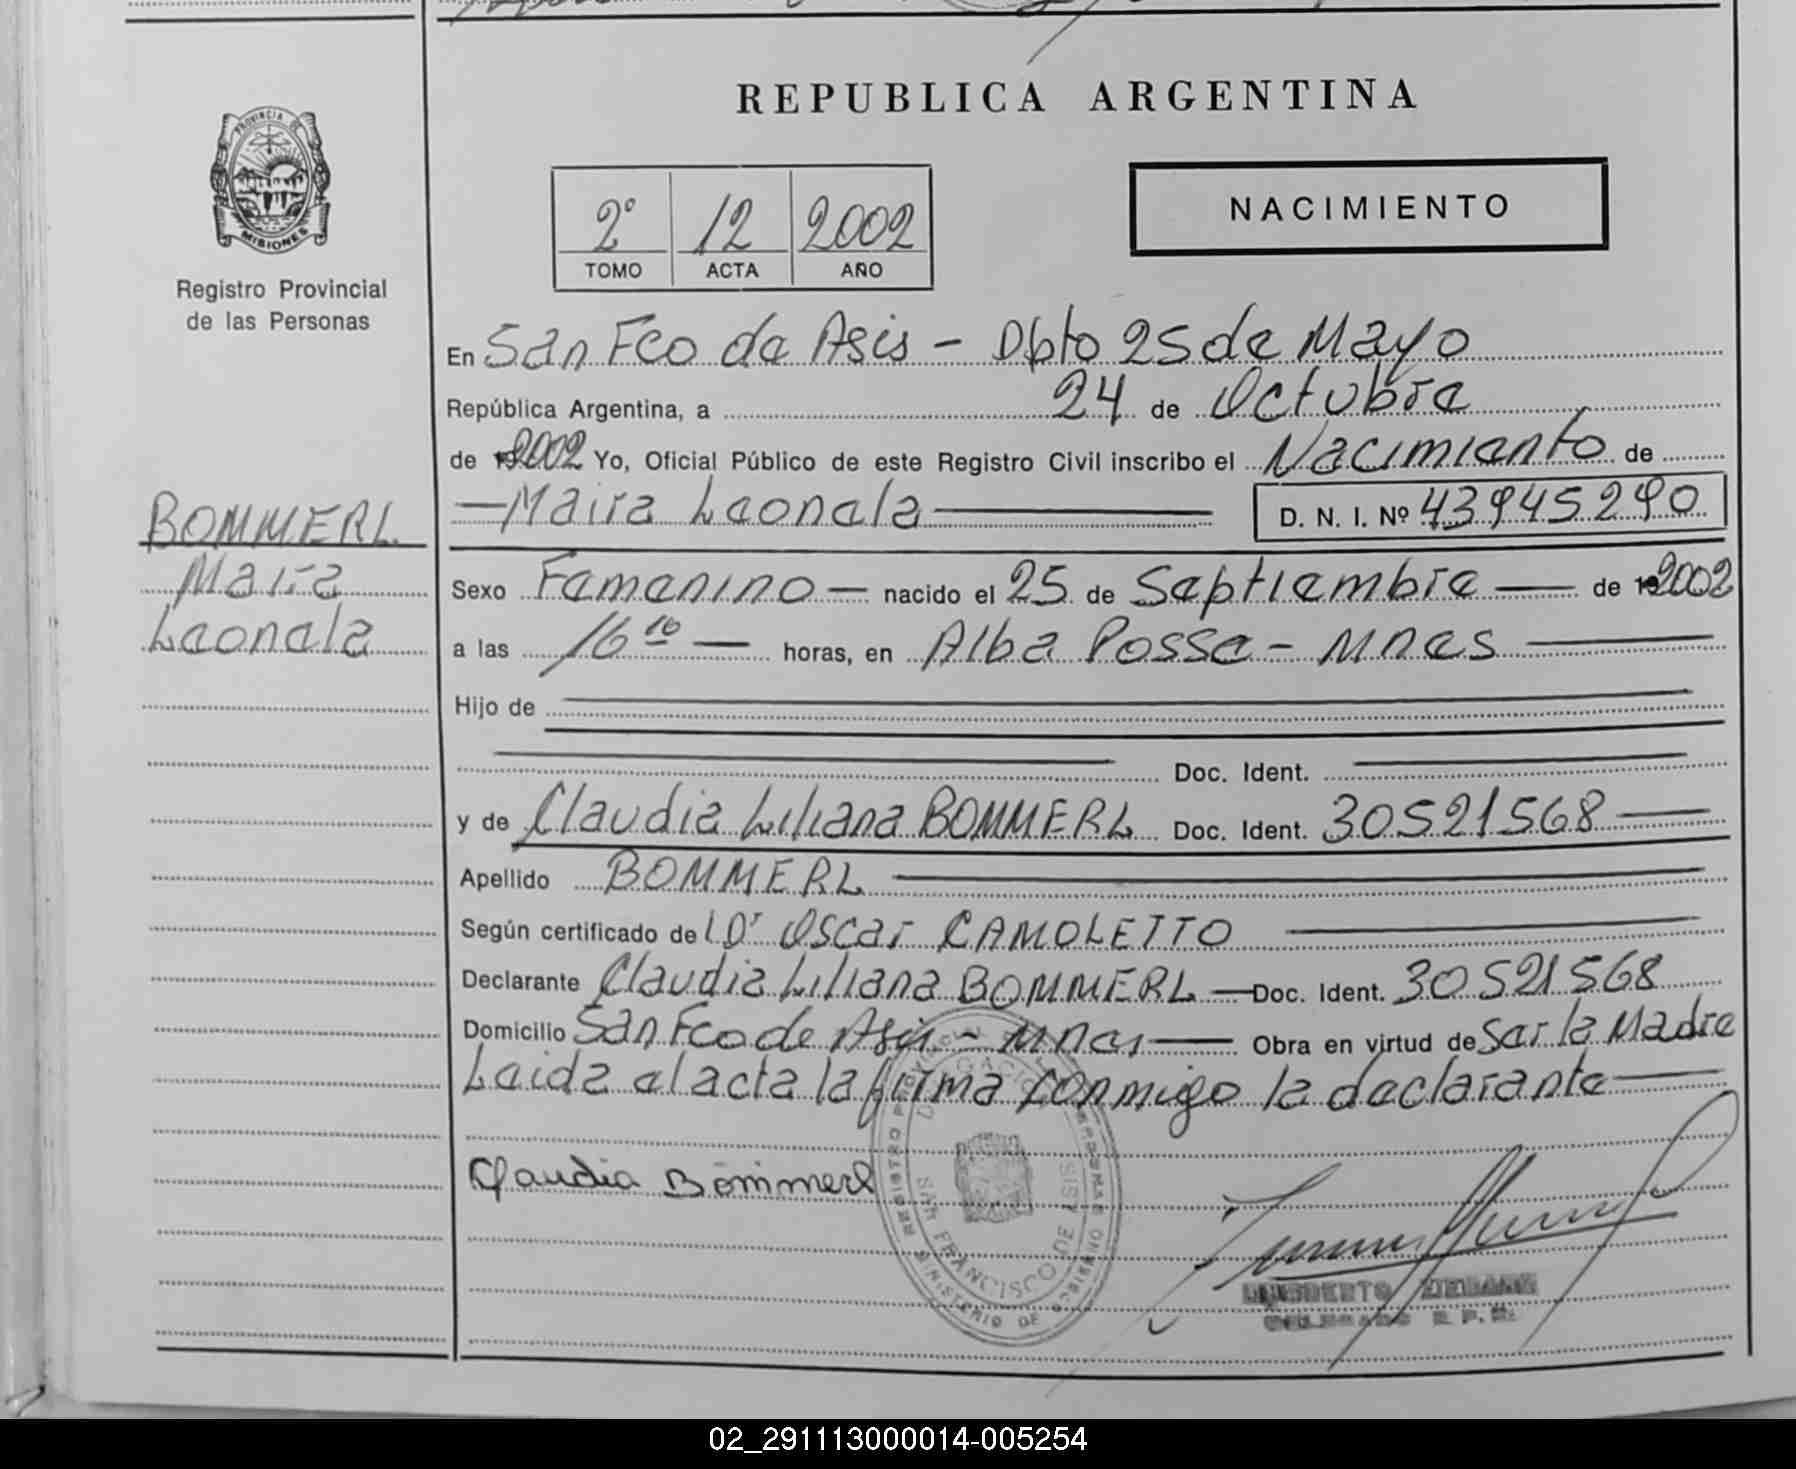 REPUBLICA ARGENTINA
PROVINCIA DE
MISIONES
Registro Provincial
de las Personas
2º 12 2002
TOMO ACTA AÑO
NACIMIENTO
En San Fco de Asis - Dpto 25 de Mayo
República Argentina, a 24 de Octubre
de 2002 Yo, Oficial Público de este Registro Civil inscribo el Nacimiento de
Maira Leonela D. N. I. Nº 43945290
BOMMERL
Maira
Leonela
Sexo Femenino - nacido el 25 de Septiembre de 2002
a las 16 10 horas, en Alba Posse - Mnes
Hijo de
Doc. Ident.
y de Claudia Liliana BOMMERL Doc. Ident. 30521568
Apellido BOMMERL
Según certificado de Dr Oscar CAMOLETTO
Declarante Claudia Liliana BOMMERL Doc. Ident. 30521568
Domicilio San Fco de Asis - Mnes Obra en virtud de Ser la Madre
Leida el acta la firma conmigo la declarante
Claudia Bommerl
SAN FRANCISCO DE ASIS
MINISTERIO DE
02_291113000014-005254